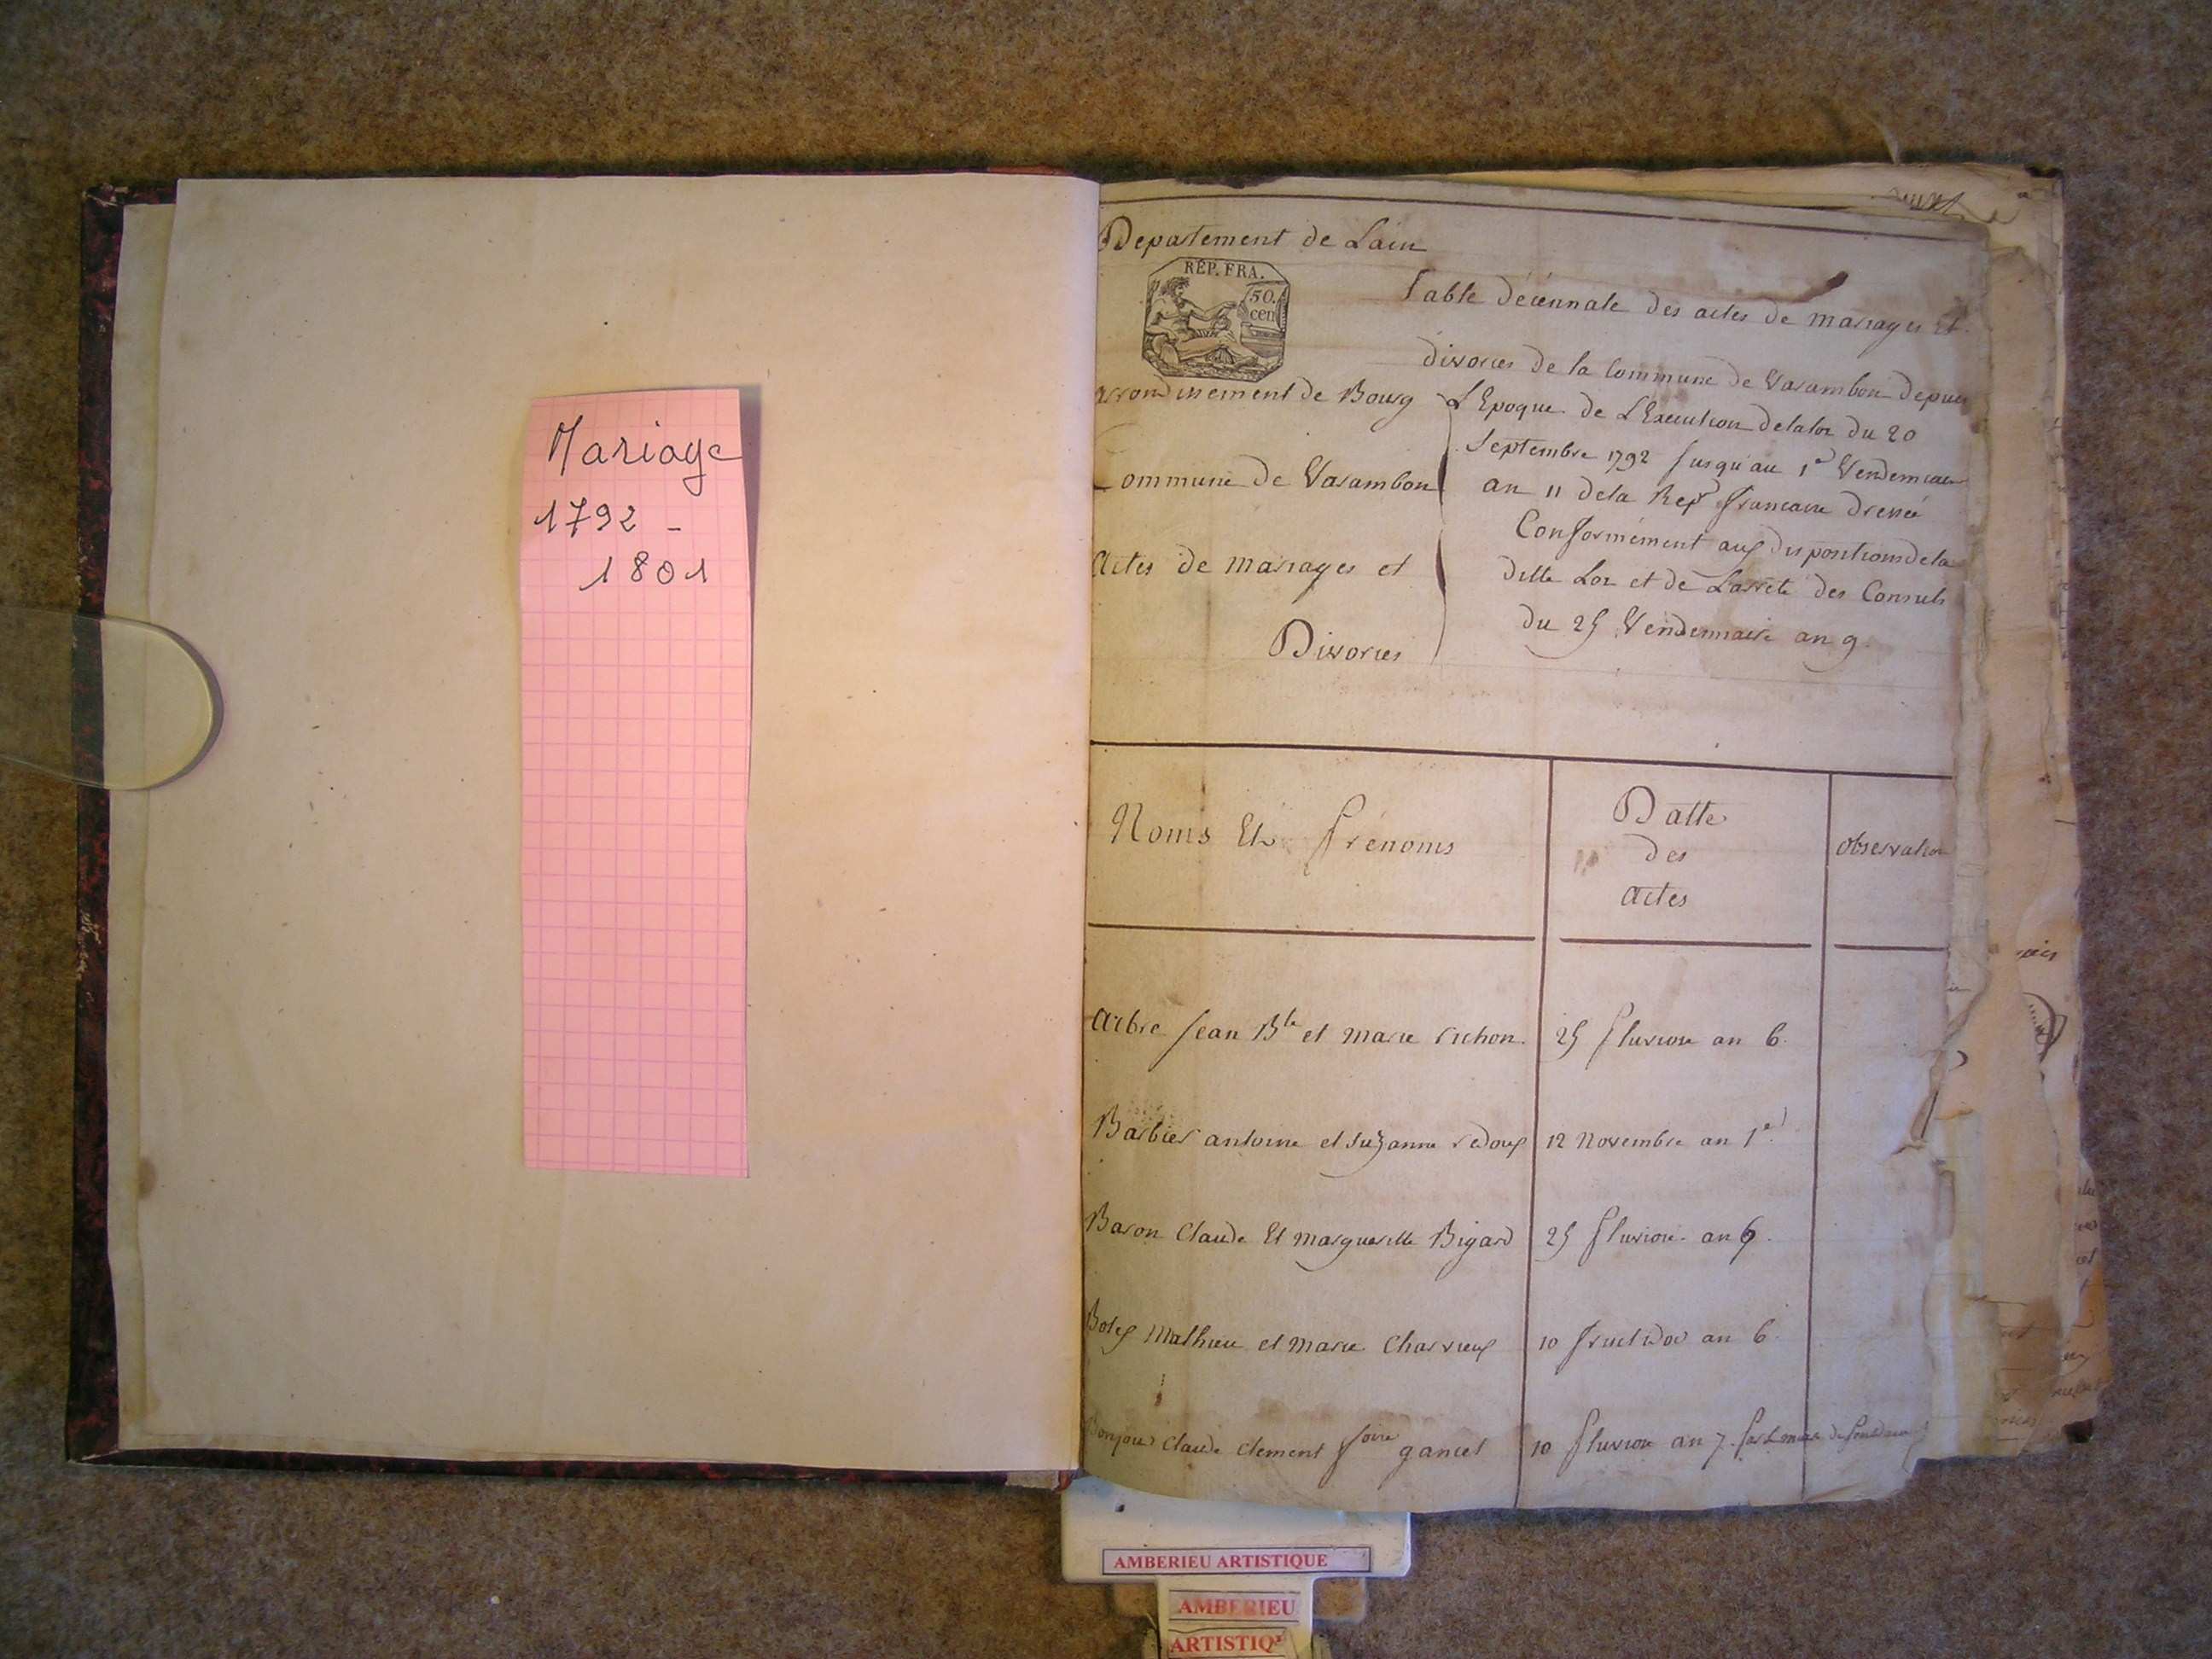 Mariage
1792 -
1801
Departement de Lain
REP. FRA.
50.
cen
Table décennale des actes de mariages Et
divorces de la Commune de Varambon depuis
arrondissement de Bourg
L'Epoque de L'Execution delaloi du 20
Septembre 1792 jusqu'au 1er Vendemiaire
Commune de Varambon
an 11 dela Rep. francaise dressée
Conformément aux dispositions dela
Actes de mariages et
ditte Loi et de Larreté des Consuls
Divorces
du 25 Vendemiaire an 9.
Noms Et Prénoms
Datte
des
actes
observation
Arbre Jean Bte et marie richon. 25 Pluviose an 6.
Barbier antoine et Suzanne redoux 12 Novembre an 1er
Baron Claude Et margueritte Bigard 25 Pluviose an
Mathieu et marie Charvieux 10 fructidor an 6.
Bonjour Claude Clement gancel 10 Pluviose an 7.
AMBERIEU ARTISTIQUE
AMBERIEU
ARTISTIQ